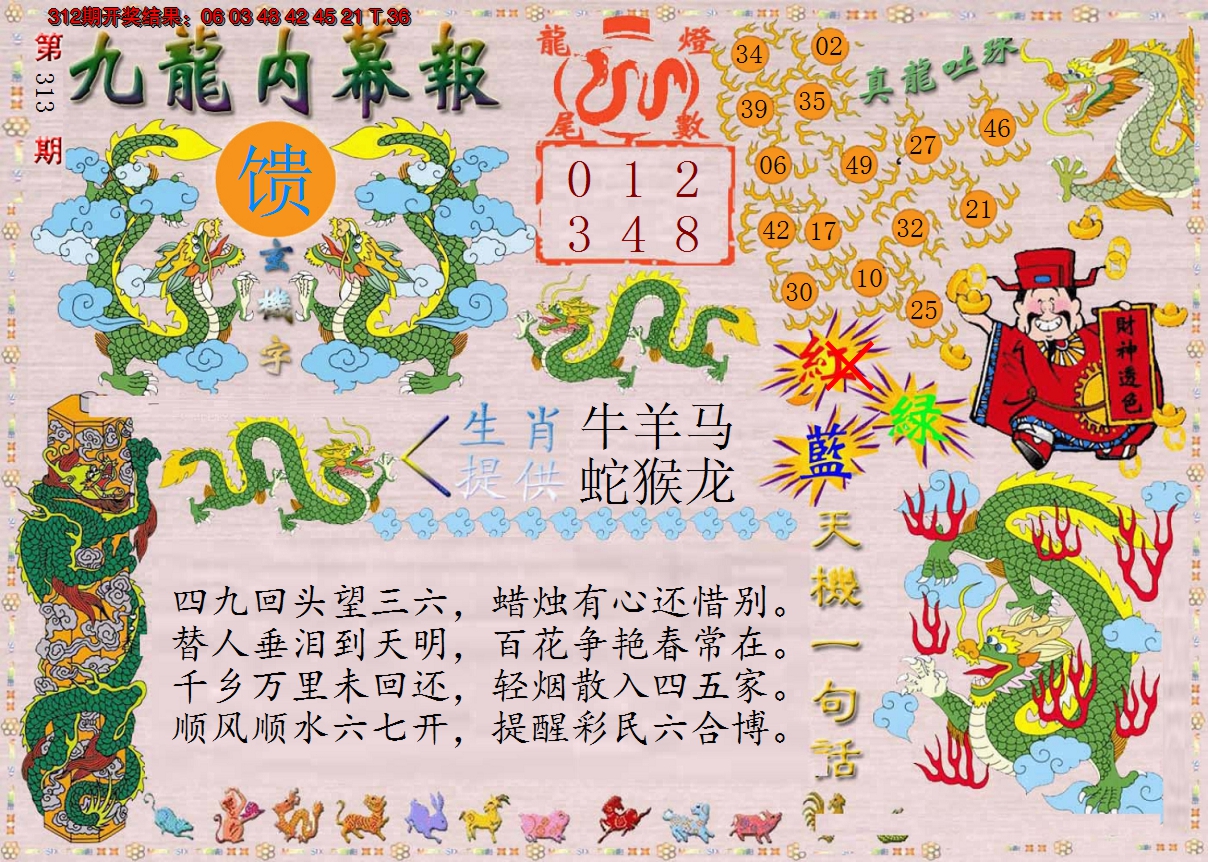 312期开奖结果：06 03 48 42 45 21 T 36
第313期
九龍内幕報
馈
玄機字
龍燈尾數
0 1 2
3 4 8
真龍吐珠
34 02
39 35
46
27
06 49
21
42 17 32
10
30
25
財神透色
紅
綠
藍
生肖 牛羊马
提供 蛇猴龙
天機一句话
四九回头望三六，蜡烛有心还惜别。
替人垂泪到天明，百花争艳春常在。
千乡万里未回还，轻烟散入四五家。
顺风顺水六七开，提醒彩民六合博。